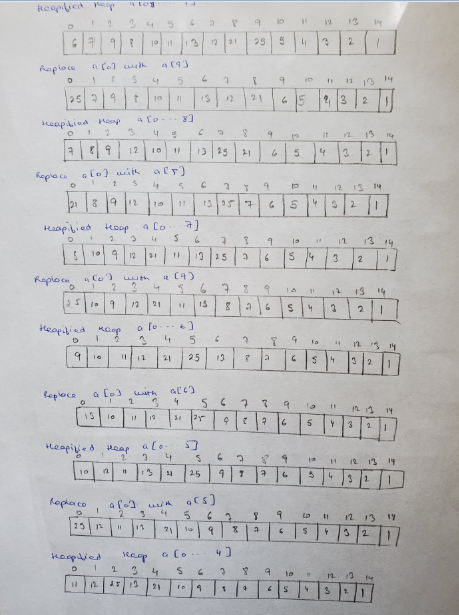 Heapified Heap
0 1 2 3 4 5 6 7 8 9 10 11 12 13 14
6 7 9 8 10 11 13 12 21 25 5 4 3 2 1
Replace a[0] with a[9]
0 1 2 3 4 5 6 7 8 9 10 11 12 13 14
25 7 9 8 10 11 13 12 21 6 5 4 3 2 1
Heapified Heap a[0 ... 8]
0 1 2 3 4 5 6 7 8 9 10 11 12 13 14
7 8 9 12 10 11 13 25 21 6 5 4 3 2 1
Replace a[0] with a[8]
0 1 2 3 4 5 6 7 8 9 10 11 12 13 14
21 8 9 12 10 11 13 25 7 6 5 4 3 2 1
Heapified Heap a[0 ... 7]
0 1 2 3 4 5 6 7 8 9 10 11 12 13 14
8 10 9 12 21 11 13 25 7 6 5 4 3 2 1
Replace a[0] with a[9]
0 1 2 3 4 5 6 7 8 9 10 11 12 13 14
25 10 9 12 21 11 13 8 7 6 5 4 3 2 1
Heapified Heap a[0 ... 6]
0 1 2 3 4 5 6 7 8 9 10 11 12 13 14
9 10 11 12 21 25 13 8 7 6 5 4 3 2 1
Replace a[0] with a[6]
0 1 2 3 4 5 6 7 8 9 10 11 12 13 14
13 10 11 12 21 25 9 8 7 6 5 4 3 2 1
Heapified Heap a[0 .. 5]
0 1 2 3 4 5 6 7 8 9 10 11 12 13 14
10 12 11 13 21 25 9 8 7 6 5 4 3 2 1
Replace a[0] with a[5]
0 1 2 3 4 5 6 7 8 9 10 11 12 13 14
25 12 11 13 21 10 9 8 7 6 5 4 3 2 1
Heapified Heap a[0 ... 4]
0 1 2 3 4 5 6 7 8 9 10 11 12 13 14
11 12 25 13 21 10 9 8 7 6 5 4 3 2 1